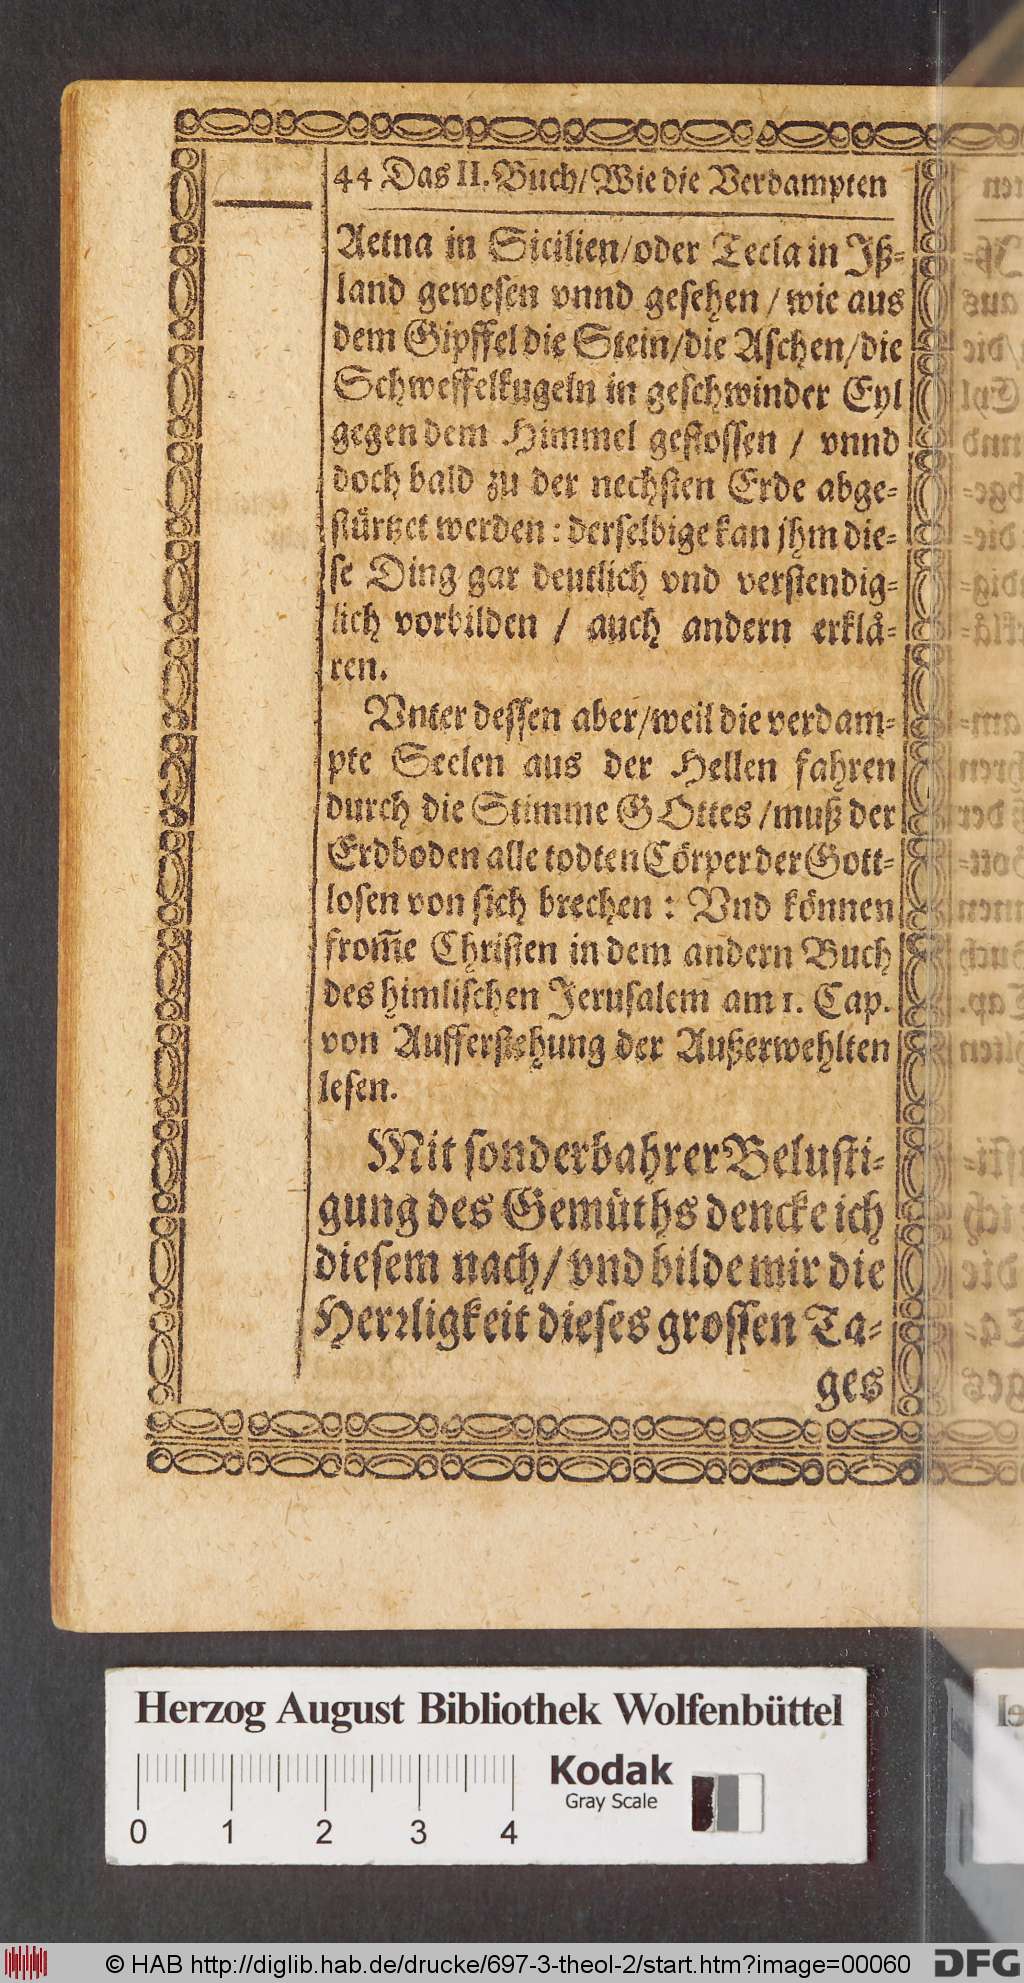 44 Das II. Buch/ Wie die Verdampten
Aetna in Sicilien/oder Tecla in Jß-
land gewesen vnnd gesehen / wie aus
dem Gipffel die Stein/die Aschen/die
Schweffelkugeln in geschwinder Eyl
gegen dem Himmel gestossen / vnnd
doch bald zu der nechsten Erde abge-
stürtzet werden : derselbige kan jhm die-
se Ding gar deutlich vnd verstendig-
lich vorbilden / auch andern erklä-
ren.
Vnter dessen aber/weil die verdam-
pte Seelen aus der Hellen fahren
durch die Stimme GOttes /muß der
Erdboden alle todten Cörper der Gott-
losen von sich brechen : Vnd können
from̃e Christen in dem andern Buch
des himlischen Jerusalem am 1. Cap.
von Aufferstehung der Außerwehlten
lesen.
Mit sonderbahrer Belusti-
gung des Gemüths dencke ich
diesem nach/ vnd bilde mir die
Herꝛligkeit dieses grossen Ta-
ges
Herzog August Bibliothek Wolfenbüttel
Kodak
Gray Scale
0 1 2 3 4
© HAB http://diglib.hab.de/drucke/697-3-theol-2/start.htm?image=00060
DFG